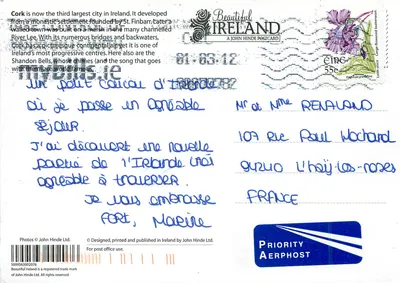 Cork is now the third largest city in Ireland. It developed
from a monastic settlement founded by St. Finbarr. Later a
walled town was built on a marsh in the many channelled
River Lee. With its numerous bridges and backwaters,
Ireland's most progressive centres. Here also are the
Shandon Bells, whose chimes (and the song that goes
Beautiful
IRELAND
A JOHN HINDE POSTCARD
01·03·12
mybills.ie
ÉIRE
55c
Un petit coucou d'Irlande
où je passe un agréable
séjour.
J'ai découvert une nouvelle
partie de l'Irlande très
agréable à traverser.
Je vous embrasse
FORT, Marine
Mr et Mme RENALAND
107 RUE Paul Hochard
94240 L'Haÿ-Les-Roses
FRANCE
PRIORITY
AERPHOST
Photos © John Hinde Ltd.
© Designed, printed and published in Ireland by John Hinde Ltd.
For post office use.
Beautiful Ireland is a registered trade mark
of John Hinde Ireland Ltd.